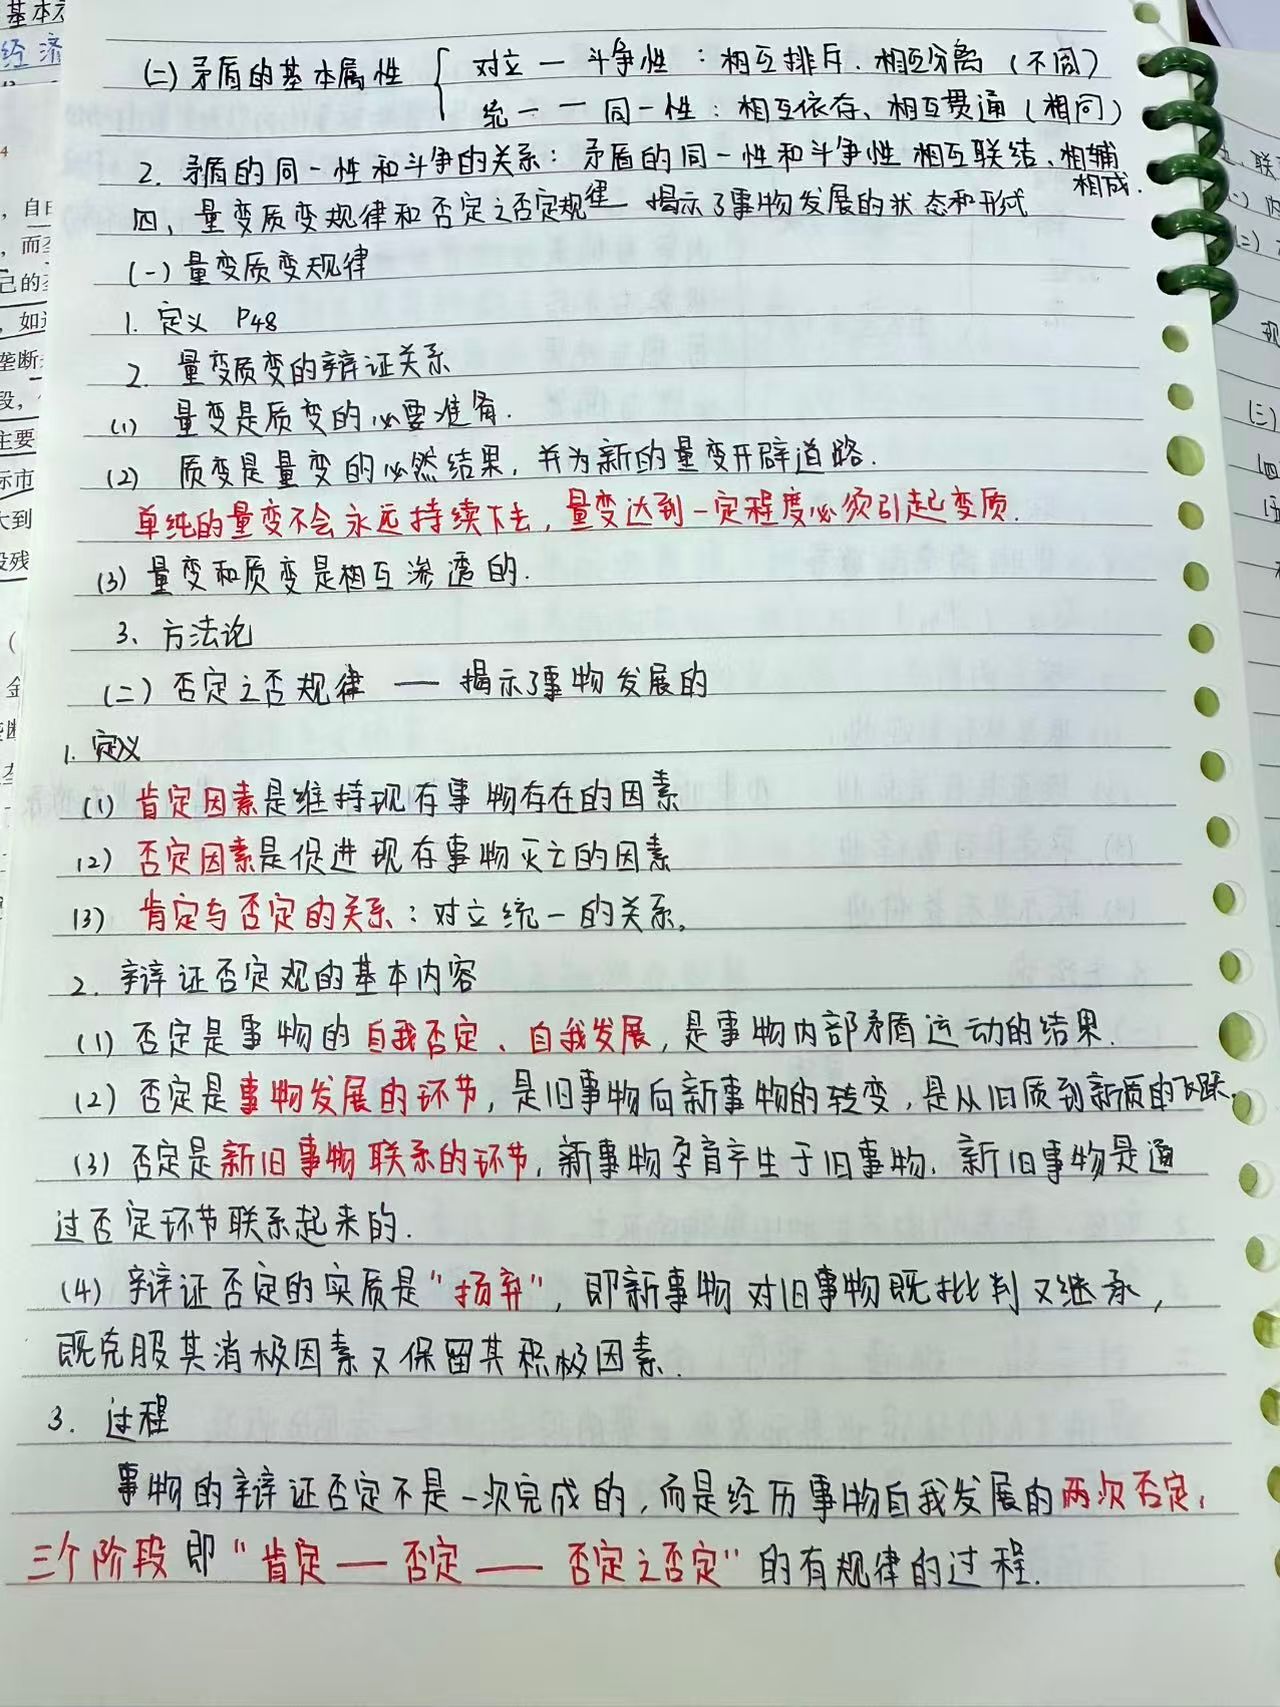 基本
经济
(二) 矛盾的基本属性 { 对立 — 斗争性：相互排斥、相互分离（不同）
统一 — 同一性：相互依存、相互贯通（相同）
2. 矛盾的同一性和斗争的关系：矛盾的同一性和斗争性相互联结、相辅
相成.
四、量变质变规律和否定之否定规律 揭示了事物发展的状态和形式
(一) 量变质变规律
1. 定义 P48
2. 量变质变的辩证关系
(1) 量变是质变的必要准备.
(2) 质变是量变的必然结果，并为新的量变开辟道路.
单纯的量变不会永远持续下去，量变达到一定程度必须引起变质.
(3) 量变和质变是相互渗透的.
3、方法论
(二) 否定之否规律 — 揭示了事物发展的
1. 定义
(1) 肯定因素是维持现有事物存在的因素
(2) 否定因素是促进现有事物灭亡的因素
(3) 肯定与否定的关系：对立统一的关系。
2. 辩证否定观的基本内容
(1) 否定是事物的自我否定、自我发展，是事物内部矛盾运动的结果.
(2) 否定是事物发展的环节，是旧事物向新事物的转变，是从旧质到新质的飞跃.
(3) 否定是新旧事物联系的环节，新事物孕育产生于旧事物，新旧事物是通
过否定环节联系起来的.
(4) 辩证否定的实质是“扬弃”，即新事物对旧事物既批判又继承，
既克服其消极因素又保留其积极因素.
3. 过程
事物的辩证否定不是一次完成的，而是经历事物自我发展的两次否定，
三个阶段即“肯定 — 否定 — 否定之否定”的有规律的过程.